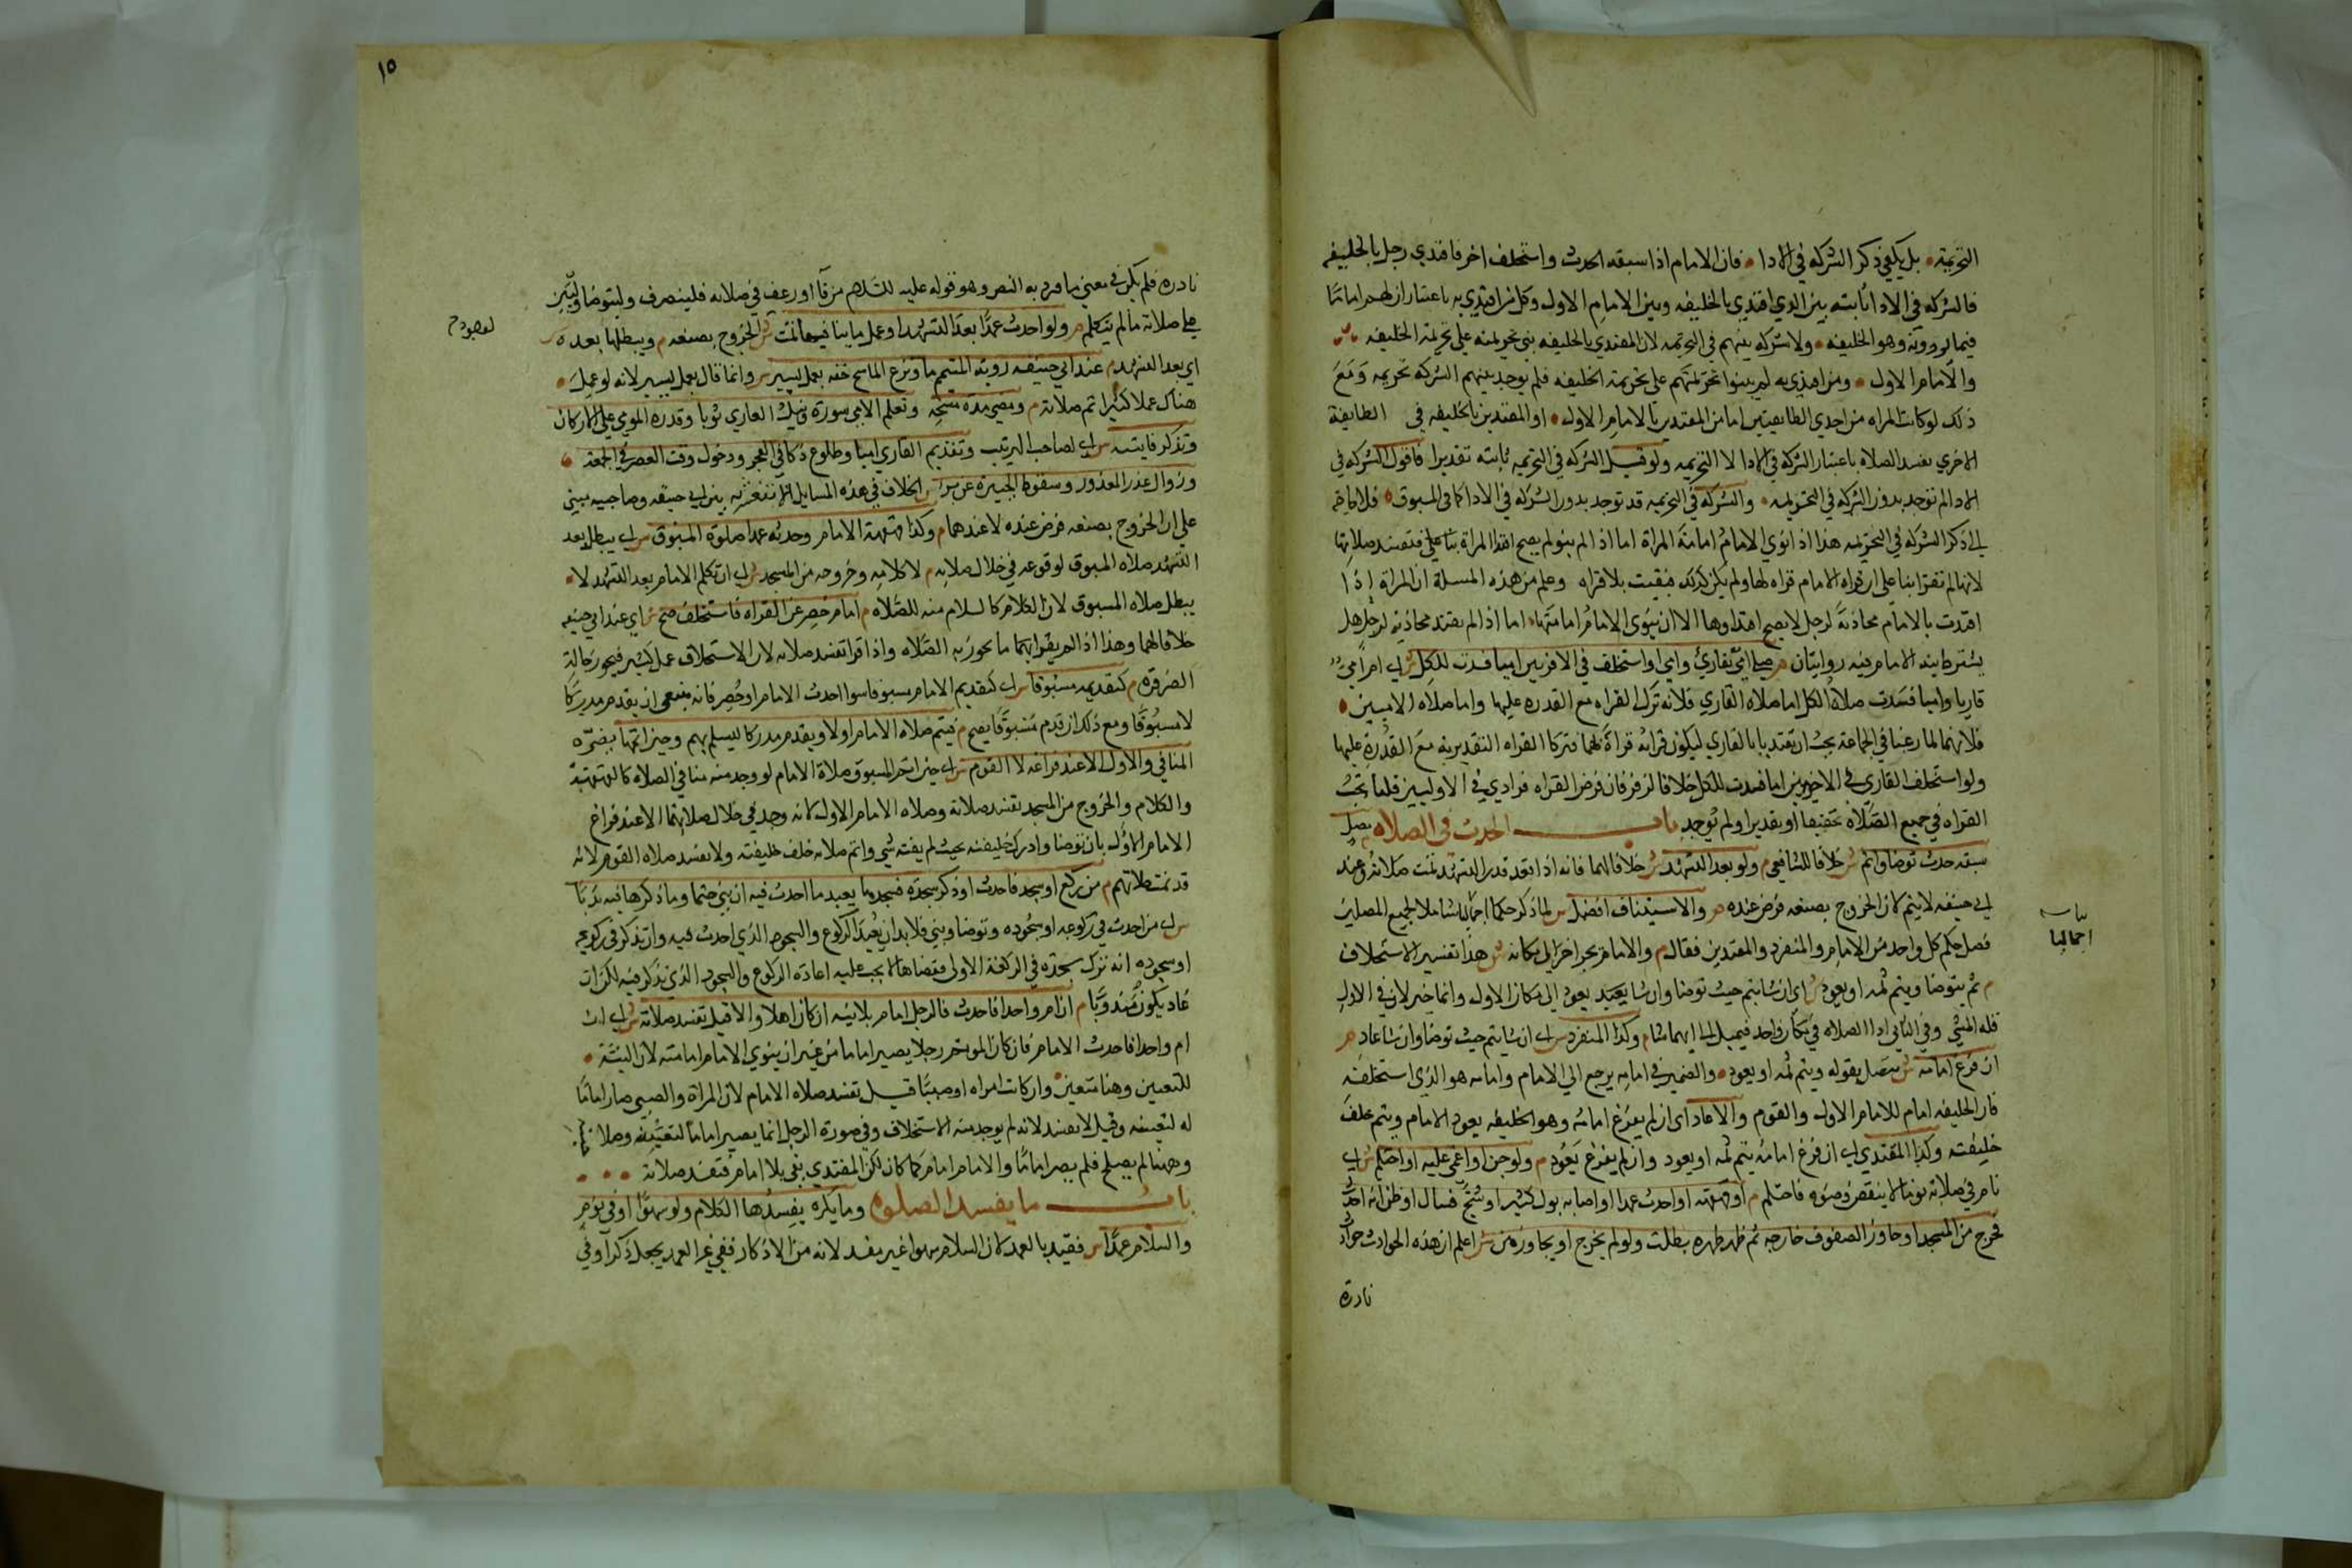 التحريمة بل يكفي ذكر الشركه في الادا فان الامام اذا سبقه الحدث واستخلف اخر فاقتدي رجل بالخليفه
فالشركه في الادا ثابته بين الذي اقتدي بالخليفه وبين الامام الاول وكل من اقتدي به باعتبار ان لهم اماما
فيما يودونه وهو الخليفه ولا شركه بينهم في التحريمه لان المقتدي بالخليفه بني تحريمته علي تحريمة الخليفه
والامام الاول ومن اقتدي به لم يبنوا تحريمتهم علي تحريمة الخليفه فلم يوجد بينهم الشركه تحريمه ومع
ذلك لو كانت المراه من احدي الطايفتين اما من المقتدين بالامام الاول او المقتدين بالخليفه في الطايفة
الاخري تفسد الصلاه باعتبار الشركه في الادا لا التحريمه ولو قيل الشركه في التحريمه ثابته تقديرا فاقول الشركه في
الادا لم توجد بدون الشركه في التحريمه والشركه في التحريمه قد توجد بدون الشركه في الادا كما في المسبوق فلا حاجة
الي ذكر الشركه في التحريمه هذا اذا نوي الامام امامة المراة اما اذا لم ينو لم يصح اقتدا المراة بنا علي فتفسد صلاتها
لانها لم تقرا بنا علي ان قراه الامام قراه لها ولم يكن كذلك فبقيت بلا قراه وعلم من هذه المسلة ان المراة اذا
اقتدت بالامام محاذية لرجل لا يصح اقتداوها الا ان ينوي الامام امامتها اما اذا لم يقتد محاذية لرجل هل
يشترط نية الامام فيه روايتان م صلي امي بقاري وامي او استخلف في الاخريين اميا فسدت للكل ش اي ام امي
قاريا واميا فسدت صلاة الكل اما صلاه القاري فلانه ترك القراه مع القدره عليها واما صلاه الاميين
فلانهما لما رغبا في الجماعة يجب ان يقتديا بالقاري ليكون قراته قراة لهما فتركا القراه التقديريه مع القدرة عليها
ولو استخلف القاري في الاخريين اميا فسدت للكل خلافا لزفر فان فرض القراه فرادي في الاوليين قلنا يجب
القراه في جميع الصلاة تحقيقا او تقديرا ولم توجد باب الحدث في الصلاه مصل
سبقه حدث توضا واتم ش خلافا للشافعي م ولو بعد التشهد ش خلافا لهما فانه اذا قعد قدر التشهد تمت صلاته وعند
ابي حنيفه لا يتم لان الخروج بصنعه فرض عنده م والاستيناف افضل ش لما ذكر حكما اجماليا شاملا لجميع المصلين
فصل حكم كل واحد من الامام والمنفرد والمقتدين فقال م والامام يجر اخر الي مكانه ش هذا تفسير الاستخلاف
م ثم يتوضا ويتم ثمه او يعود ش اي ان شا يتم حيث توضا وان شا يعود الي مكان الاول وانما خير لان في الاول
قلة المشي وفي الثاني ادا الصلاه في مكان واحد فيميل الي ايهما شا م وكذا المنفرد ش اي ان شا يتم حيث توضا وان شا عاد م
ان فرغ امامه ش متصل بقوله ويتم ثمه او يعود والضمير في امامه يرجع الي الامام وامامه هو الذي استخلفه
فان الخليفه امام للامام الاول والقوم والا عاد اي ان لم يفرغ امامه وهو الخليفه يعود الامام ويتم خلف
خليفته وكذا المقتدي اي ان فرغ امامه يتم ثمه او يعود وان لم يفرغ يعود م ولو جن او اغمي عليه او احتلم ش اي
نام في صلاته نوما لا ينقض وضوه فاحتلم م او قهقه او احدث عمدا او اصابه بول كثير او شج فسال او ظن انه احدث
فخرج من المسجد او جاوز الصفوف خارجه ثم ظهر طهره بطلت ولو لم يخرج او يجاوز بني ش اعلم ان هذه الحوادث حوادث
نادرة
اجماليا
١٥
نادره فلم يكن في معني ما ورد به النص وهو قوله عليه السلام من قا او رعف في صلاته فلينصرف وليتوضا وليبن
علي صلاته ما لم يتكلم م ولو احدث عمدا بعد التشهد او عمل ما ينافيها تمت ش الخروج بصنعه م ويبطلها بعده
اي بعد التشهد م عند ابي حنيفه روية المتيمم ما ونزع الماسح خفه بعمل يسير ش وانما قال بعمل يسير لانه لو عمل
هناك عملا كثيرا تم صلاته م ومضي مدة مسحه وتعلم الامي سورة ونيل العاري ثوبا وقدره المومي علي الاركان
وتذكر فايتة ش اي لصاحب الترتيب وتقديم القاري اميا وطلوع ذكا في الفجر ودخول وقت العصر في الجمعه
وزوال عذر المعذور وسقوط الجبيرة عن برا ش الخلاف في هذه المسايل الاثنيعشريه بين ابي حنيفه وصاحبيه مبني
علي ان الخروج بصنعه فرض عنده لا عندهما م وكذا قهقهة الامام وحدثه عمدا صلوة المسبوق ش اي يبطل بعد
التشهد صلاه المسبوق لوقوعه في خلال صلاته م لا كلامه وخروجه من المسجد ش اي ان تكلم الامام بعد التشهد لا
يبطل صلاه المسبوق لان الكلام كالسلام منه للصلاه م امام حصر عن القراه فاستخلف صح ش اي عند ابي حنيفه
خلافا لهما وهذا اذا لم يقرا بهما ما يجوز به الصلاه واذا قرا تفسد صلاته لان الاستخلاف عمل كثير فيجوز حالة
الضرورة م كتقديمه مسبوقا ش اي كتقديم الامام مسبوقا سوا احدث الامام او حصر فانه ينبغي ان يقدم مدركا
لا مسبوقا ومع ذلك ان قدم مسبوقا يصح م فيتم صلاه الامام اولا ويقدم مدركا ليسلم بهم وحين اتمها يضره
المنافي والاول الا عند فراغه لا القوم ش اي حين اتم المسبوق صلاة الامام لو وجد منه منافي الصلاه كالقهقهة
والكلام والخروج من المسجد تفسد صلاته وصلاه الامام الاول لانه وجد في خلال صلاتهما الا عند فراغ
الامام الاول بان توضا وادرك خليفته بحيث لم يفته شي واتم صلاته خلف خليفته ولا تفسد صلاه القوم لانه
قد تمت صلاتهم م من ركع او سجد فاحدث او ذكر سجدة فسجدها يعيد ما احدث فيه ان بني حتما وما ذكرها فيه ندبا
ش اي من احدث في ركوعه او سجوده وتوضا وبني فلا بد ان يعيد الركوع والسجود الذي احدث فيه وان تذكر في ركوعه
او سجوده انه ترك سجدة في الركعة الاولي فقضاها لا يجب عليه اعادة الركوع والسجود الذي تذكر فيه لكن ان
عاد يكون مندوبا م ان ام واحدا فاحدث فالرجل امام بلا نيه ان كان اهلا والا قيل تفسد صلاته ش اي ان
ام واحدا فاحدث الامام فان كان الموتم رجلا يصير اماما من غير ان ينوي الامام امامته لان النية
للتعيين وهنا متعين وان كانت امراه او صبيا قيل تفسد صلاه الامام لان المراة والصبي صار اماما
له لتعينه وقيل لا تفسد لانه لم يوجد منه الاستخلاف وفي صورة الرجل انما يصير اماما لتعينه وصلاحه
وهنا لم يصلح فلم يصر اماما والامام امام كما كان لكن المقتدي بقي بلا امام فتفسد صلاته
باب ما يفسد الصلوه وما يكره يفسدها الكلام ولو سهوا او في نوم
والسلام عمدا ش فقيد بالعمد لان السلام سهوا غير مفسد لانه من الاذكار ففي غير العمد يجعل ذكرا وفي